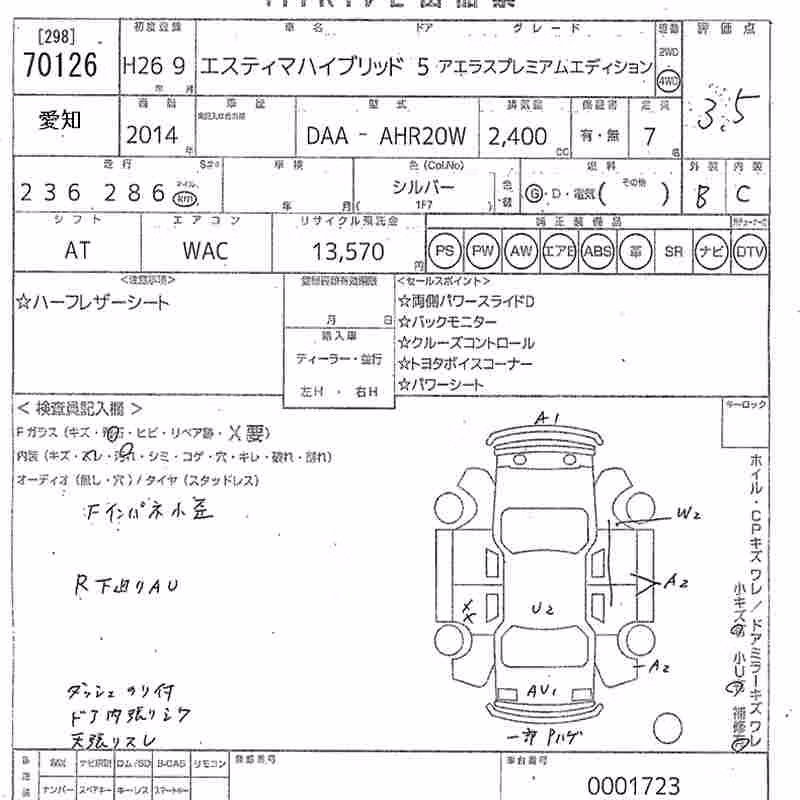 [298]
70126
初度登録 車名 ドア グレード 駆動 評価点
H26 9 エスティマハイブリッド 5 アエラスプレミアムエディション
2WD
4WD
年 月
3.5
愛知
車歴 型式 排気量 保証書 定員
2014 DAA - AHR20W 2,400 有・無 7
年 CC 名
走行 車検 色(Col.No) 燃料 外装 内装
236 286 マイル km
年 月
シルバー
1F7
色替
G・D・電気( その他 )
B C
シフト エアコン リサイクル預託金 純正装備品
AT WAC 13,570 円
PS PW AW エアB ABS 革 SR ナビ DTV
<注意事項>
☆ハーフレザーシート
登録書類有効期限
月 日
輸入車
ディーラー・並行
左H ・ 右H
<セールスポイント>
☆両側パワースライドD
☆バックモニター
☆クルーズコントロール
☆トヨタボイスコーナー
☆パワーシート
キーロック
<検査員記入欄>
Fガラス(キズ・飛石・ヒビ・リペア跡・X要)
内装(キズ・スレ・汚れ・シミ・コゲ・穴・キレ・破れ・割れ)
オーディオ(無し・穴)/タイヤ(スタッドレス)
Fインパネ小歪
R下廻りAU
ダッシュのり付
ドア内張りシワ
天張りスレ
A1
W2
A2
XX
U2
A2
AU1
一部Pハゲ
ホイル・CPキズワレ/ドアミラーキズワレ
小キズ有 小U有 補修有
ナビROM ロム/SD B-CAS リモコン
ナンバー スペアキー キーレス スマートキー
登録番号
車台番号
0001723